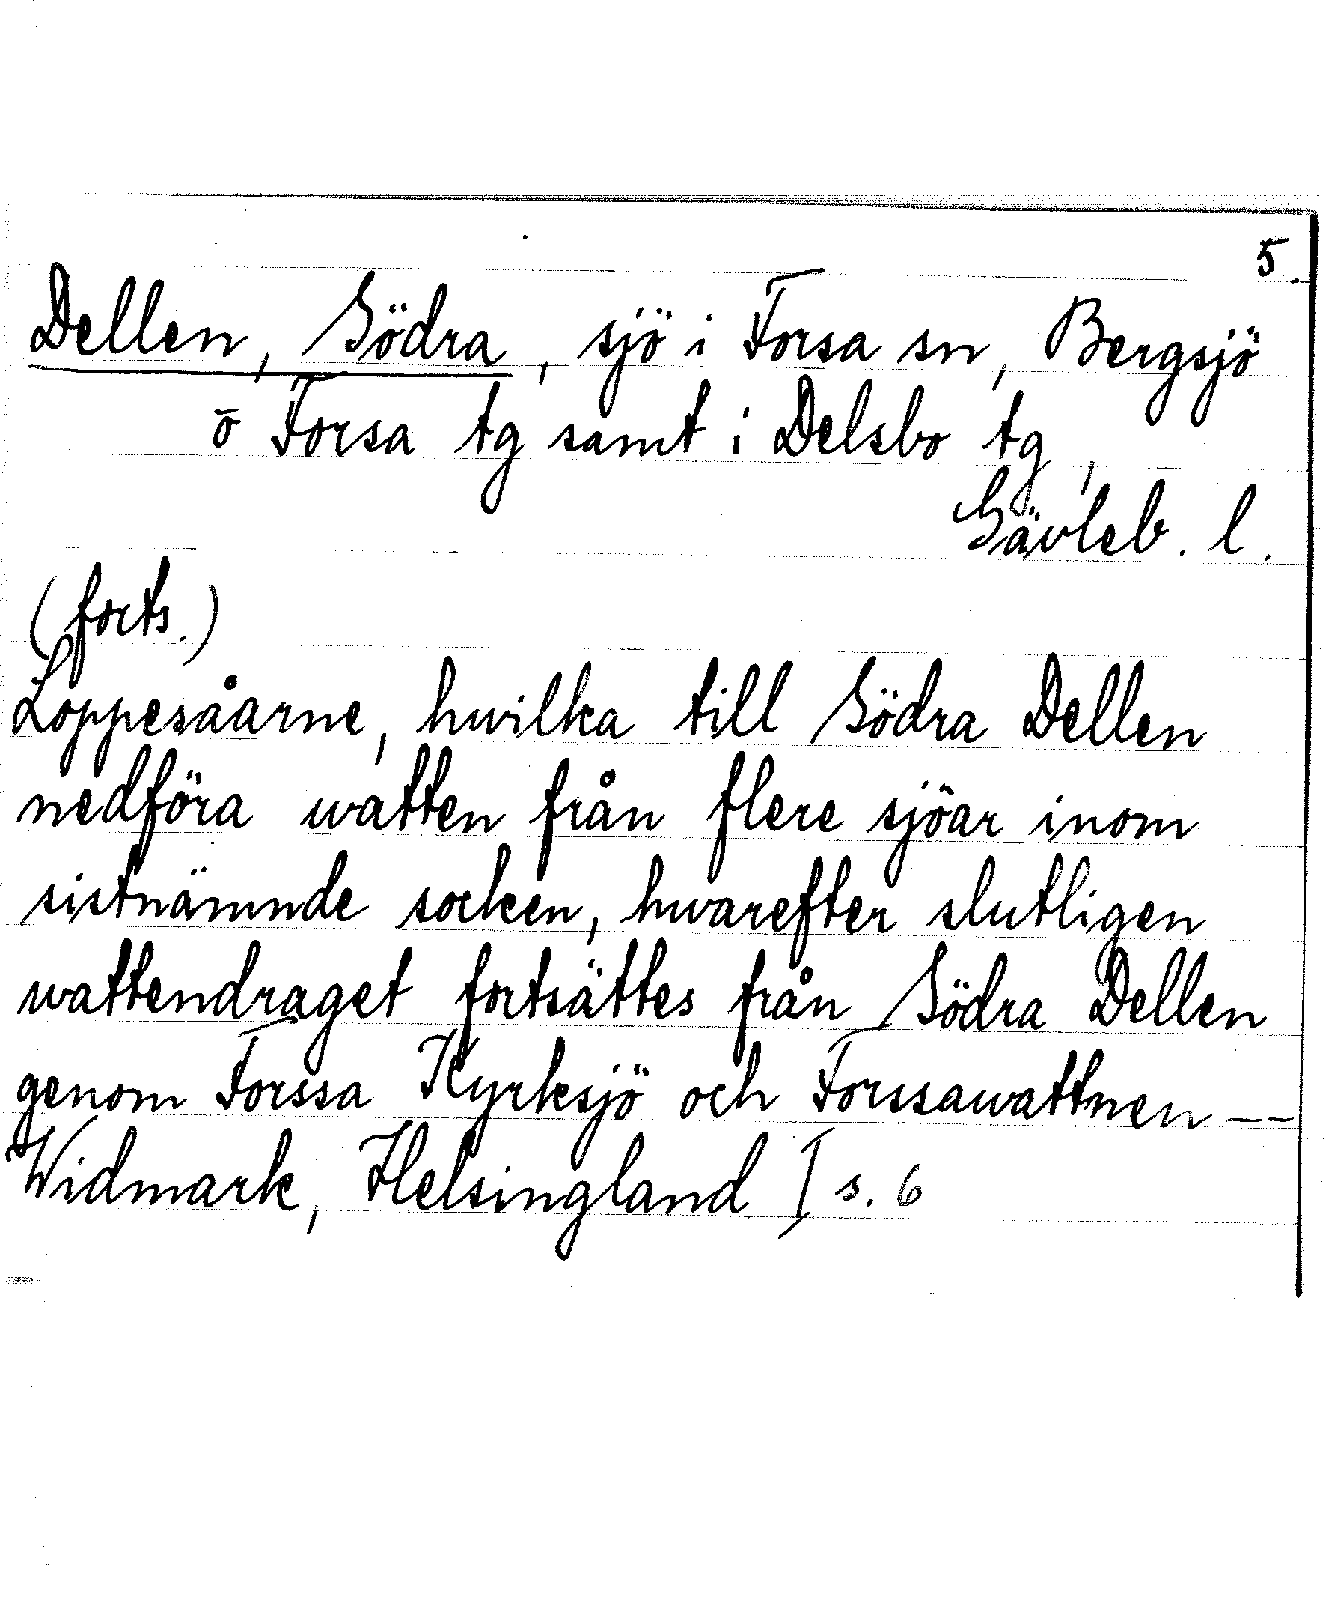 5.
Dellen, Södra, sjö i Forsa sn, Bergsjö
o Forsa tg samt i Delsbo tg,
Gävleb. l.
(forts.)
Loppesåarne, hwilka till Södra Dellen
nedföra watten från flere sjöar inom
sistnämnde socken, hwarefter slutligen
wattendraget fortsättes från Södra Dellen
genom Forssa Kyrksjö och Forssawattnen — —
Widmark, Helsingland I s. 6